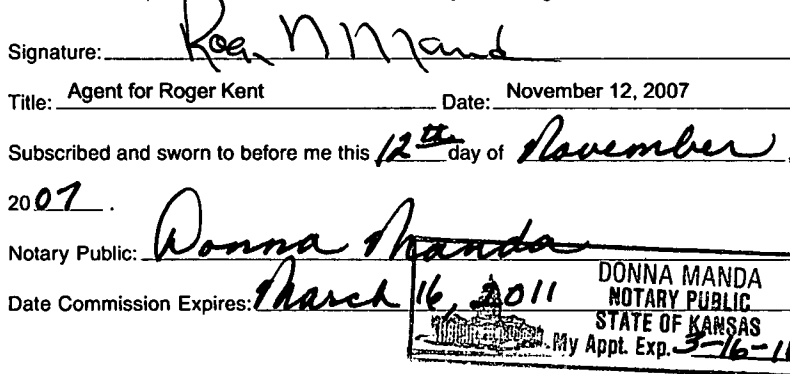 Signature:
Title: Agent for Roger Kent Date: November 12, 2007
Subscribed and sworn to before me this 12th day of November,
2007.
Notary Public: Donna Manda
Date Commission Expires: March 16, 2011
DONNA MANDA
NOTARY PUBLIC
STATE OF KANSAS
My Appt. Exp. 3-16-11